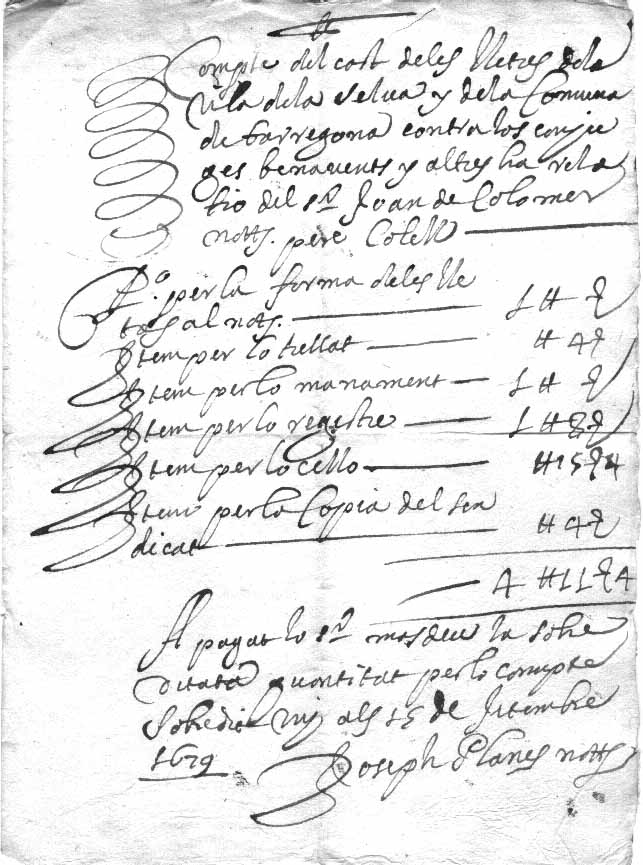 Compte del cost deles lletres dela
vila dela selva y dela Comuna
de tarregona contra los conju
ges benavents y altres ha rela
tio del sr Joan de Colomer
notts. pere Colell
Po. per la forma deles lle
tres al notts. 1 ₶ ꝭ
Item per lo trellat ₶ 4 ꝭ
Item per lo manament 1 ₶ ꝭ
Item per lo registre 1 ₶ 8 ꝭ
Item per lo cello ₶ 15 ꝭ 4
Item per la Copia del sin
dicat ₶ 4 ꝭ
4 ₶ 11 ꝭ 4
A pagat lo sr masdeu la sobre
ditata quantitat per lo compte
sobredit vuy als 15 de setembre
1679
Joseph Planes notts